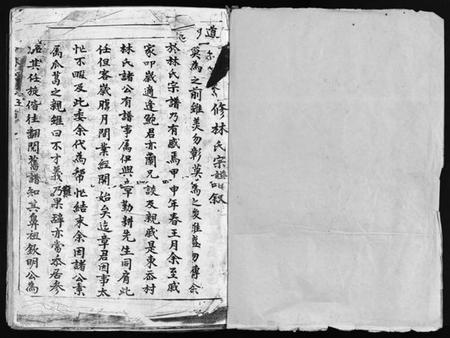 修林氏宗譜叙
莫為之前雖美勿彰莫為之後雖盛勿傳余
於林氏宗譜乃有感焉甲申年春王月余至戚
家叩歲適逢鮑君亦蘭兄談及親戚是東岙村
林氏諸公有譜事属伊與章勤耕先生同肩此
任但客歲臘月間業經開始矣迄章君因事太
忙不暇及此委余代為幫忙結束余因諸公素
属瓜葛之親雖曰不才義乃果辭亦當忝居参
任其任披偕往翻閲舊譜知其鼻祖欽明公為